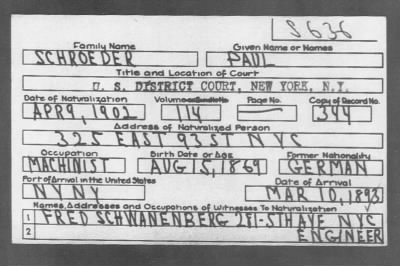 S636
Family Name Given Name or Names
SCHROEDER PAUL
Title and Location of Court
U. S. DISTRICT COURT, NEW YORK, N.Y.
Date of Naturalization Volume Page No. Copy of Record No.
APR 9, 1902 114 344
Address of Naturalized Person
325 EAST 93 ST NYC
Occupation Birth Date or Age Former Nationality
MACHINIST AUG 15, 1869 GERMAN
Port of Arrival in the United States Date of Arrival
NYNY MAR 10, 1893
Names, Addresses and Occupations of Witnesses To Naturalization
1 FRED SCHWANENBERG AVE NYC
2 ENGINEER